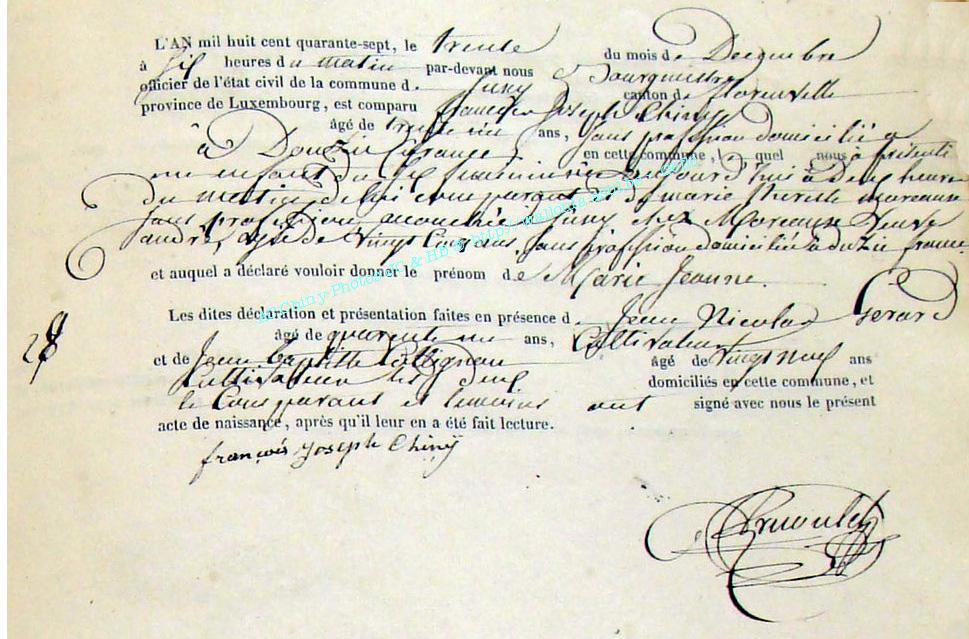 L'AN mil huit cent quarante-sept, le trente du mois de Decembre
à six heures du matin par-devant nous Bourgmestre
officier de l'état civil de la commune de canton de florenville
province de Luxembourg, est comparu francois Joseph Chiny
âgé de ans, sans profession domicilié a
à Douzy (france) en cette commune, le quel nous a présenté
un enfant du sexe feminin né aujourd'hui à Deux heure
Du matin de lui comparant et de marie moreaux
sans profession accouchée chez Moreaux Veuve
andré, agée de Vingt Cinq ans, sans profession domicilié à france.
et auquel a déclaré vouloir donner le prénom de Marie Jeanne.
Les dites déclaration et présentation faites en présence d. Jean Nicolas Gerard
âgé de quarante un ans, Cultivateur
et de Jean Baptiste Collignon âgé de vingt neuf ans
Cultivateur les deux domiciliés en cette commune, et
le Comparant et temoins ont signé avec nous le présent
acte de naissance, après qu'il leur en a été fait lecture.
28
francois Joseph Chinÿ